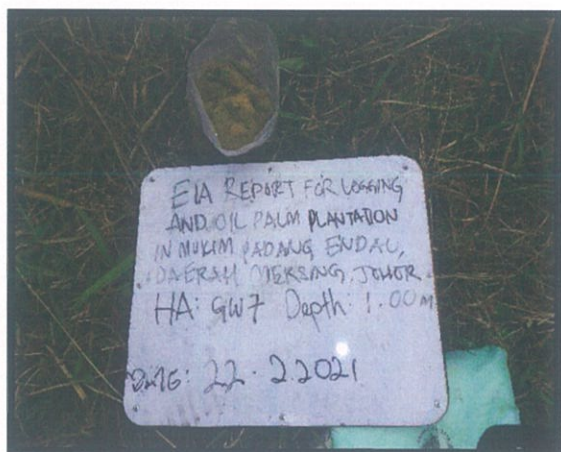 EIA REPORT FOR LOGGING
AND OIL PALM PLANTATION
IN MUKIM PADANG ENDAU,
DAERAH MERSING, JOHOR
HA: GW7 Depth: 1.00m
DATE: 22.2.2021